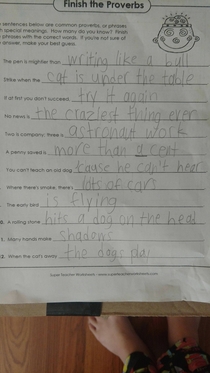 Finish the Proverbs
sentences below are common proverbs, or phrases
special meanings. How many do you know? Finish
phrases with the correct words. If you're not sure of
answer, make your best guess.
The pen is mightier than writing like a bull
Strike when the cat is under the table
If at first you don't succeed, try it again
No news is the craziest thing ever
Two's company; three's astronaut work
A penny saved is more than a cent
You can't teach an old dog cause he can't hear
Where there's smoke, there's lots of cars
The early bird is flying
A rolling stone hits a dog on the head
Many hands make shadows
When the cat's away the dogs play
Super Teacher Worksheets - www.superteacherworksheets.com